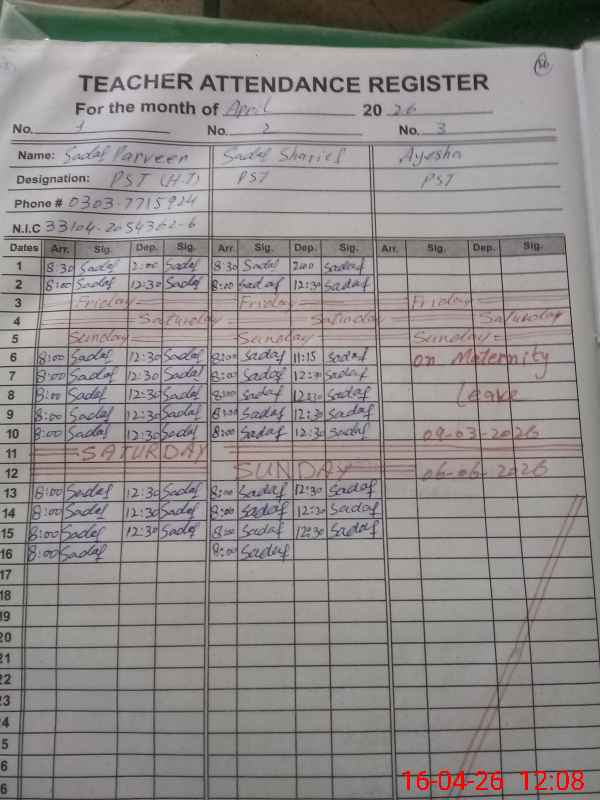 56
TEACHER ATTENDANCE REGISTER
For the month of April 2026
No. 1 No. 2 No. 3
Name: Sadaf Parveen Sadaf Sharief Ayesha
Designation: PST (H.T) PST PST
Phone # 0303-7715924
N.I.C 33104-2054362-6
Dates Arr. Sig. Dep. Sig. Arr. Sig. Dep. Sig. Arr. Sig. Dep. Sig.
1 8:30 Sadaf 2:00 Sadaf 8:30 Sadaf 2:00 Sadaf
2 8:00 Sadaf 12:30 Sadaf 8:00 Sadaf 12:30 Sadaf
3 Friday Friday Friday
4 Saturday Saturday Saturday
5 Sunday Sunday Sunday
6 8:00 Sadaf 12:30 Sadaf 8:00 Sadaf 11:15 Sadaf on Maternity
7 8:00 Sadaf 12:30 Sadaf 8:00 Sadaf 12:30 Sadaf
8 8:00 Sadaf 12:30 Sadaf 8:00 Sadaf 12:30 Sadaf Leave
9 8:00 Sadaf 12:30 Sadaf 8:00 Sadaf 12:30 Sadaf
10 8:00 Sadaf 12:30 Sadaf 8:00 Sadaf 12:30 Sadaf 09-03-2026
11 SATURDAY
12 SUNDAY 06-06-2026
13 8:00 Sadaf 12:30 Sadaf 8:00 Sadaf 12:30 Sadaf
14 8:00 Sadaf 12:30 Sadaf 8:00 Sadaf 12:30 Sadaf
15 8:00 Sadaf 12:30 Sadaf 8:00 Sadaf 12:30 Sadaf
16 8:00 Sadaf 8:00 Sadaf
17
18
19
20
21
22
23
4
5
6
6
16-04-26 12:08